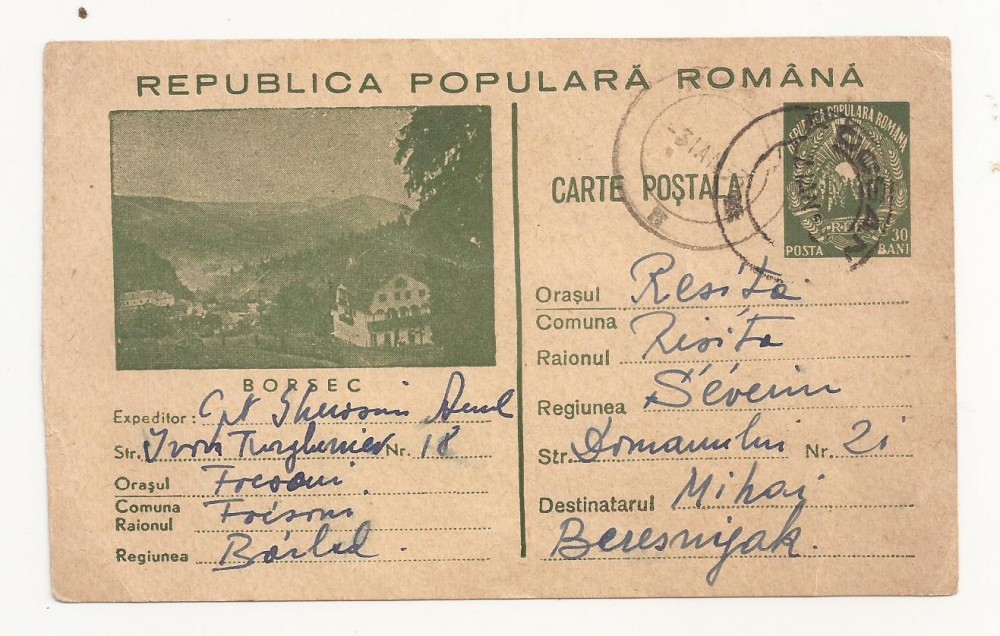 REPUBLICA POPULARĂ ROMÂNĂ
BORSEC
Expeditor: Cpt Aurel
Str. Ivan Turgheniev Nr. 18
Orașul Focsani
Comuna
Raionul Focsani
Regiunea Bârlad.
CARTE POȘTALA
REPUBLICA POPULARA ROMANA
RPR
POSTA 30 BANI
-3 IAN
Orașul Resita
Comuna
Raionul Risita
Regiunea Séverin
Str. Domanului Nr. 2i
Destinatarul Mihai
Beresnyak.